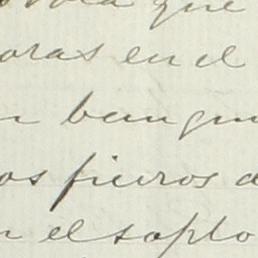 que
oras en el
benign
os fieros d
n el soplo